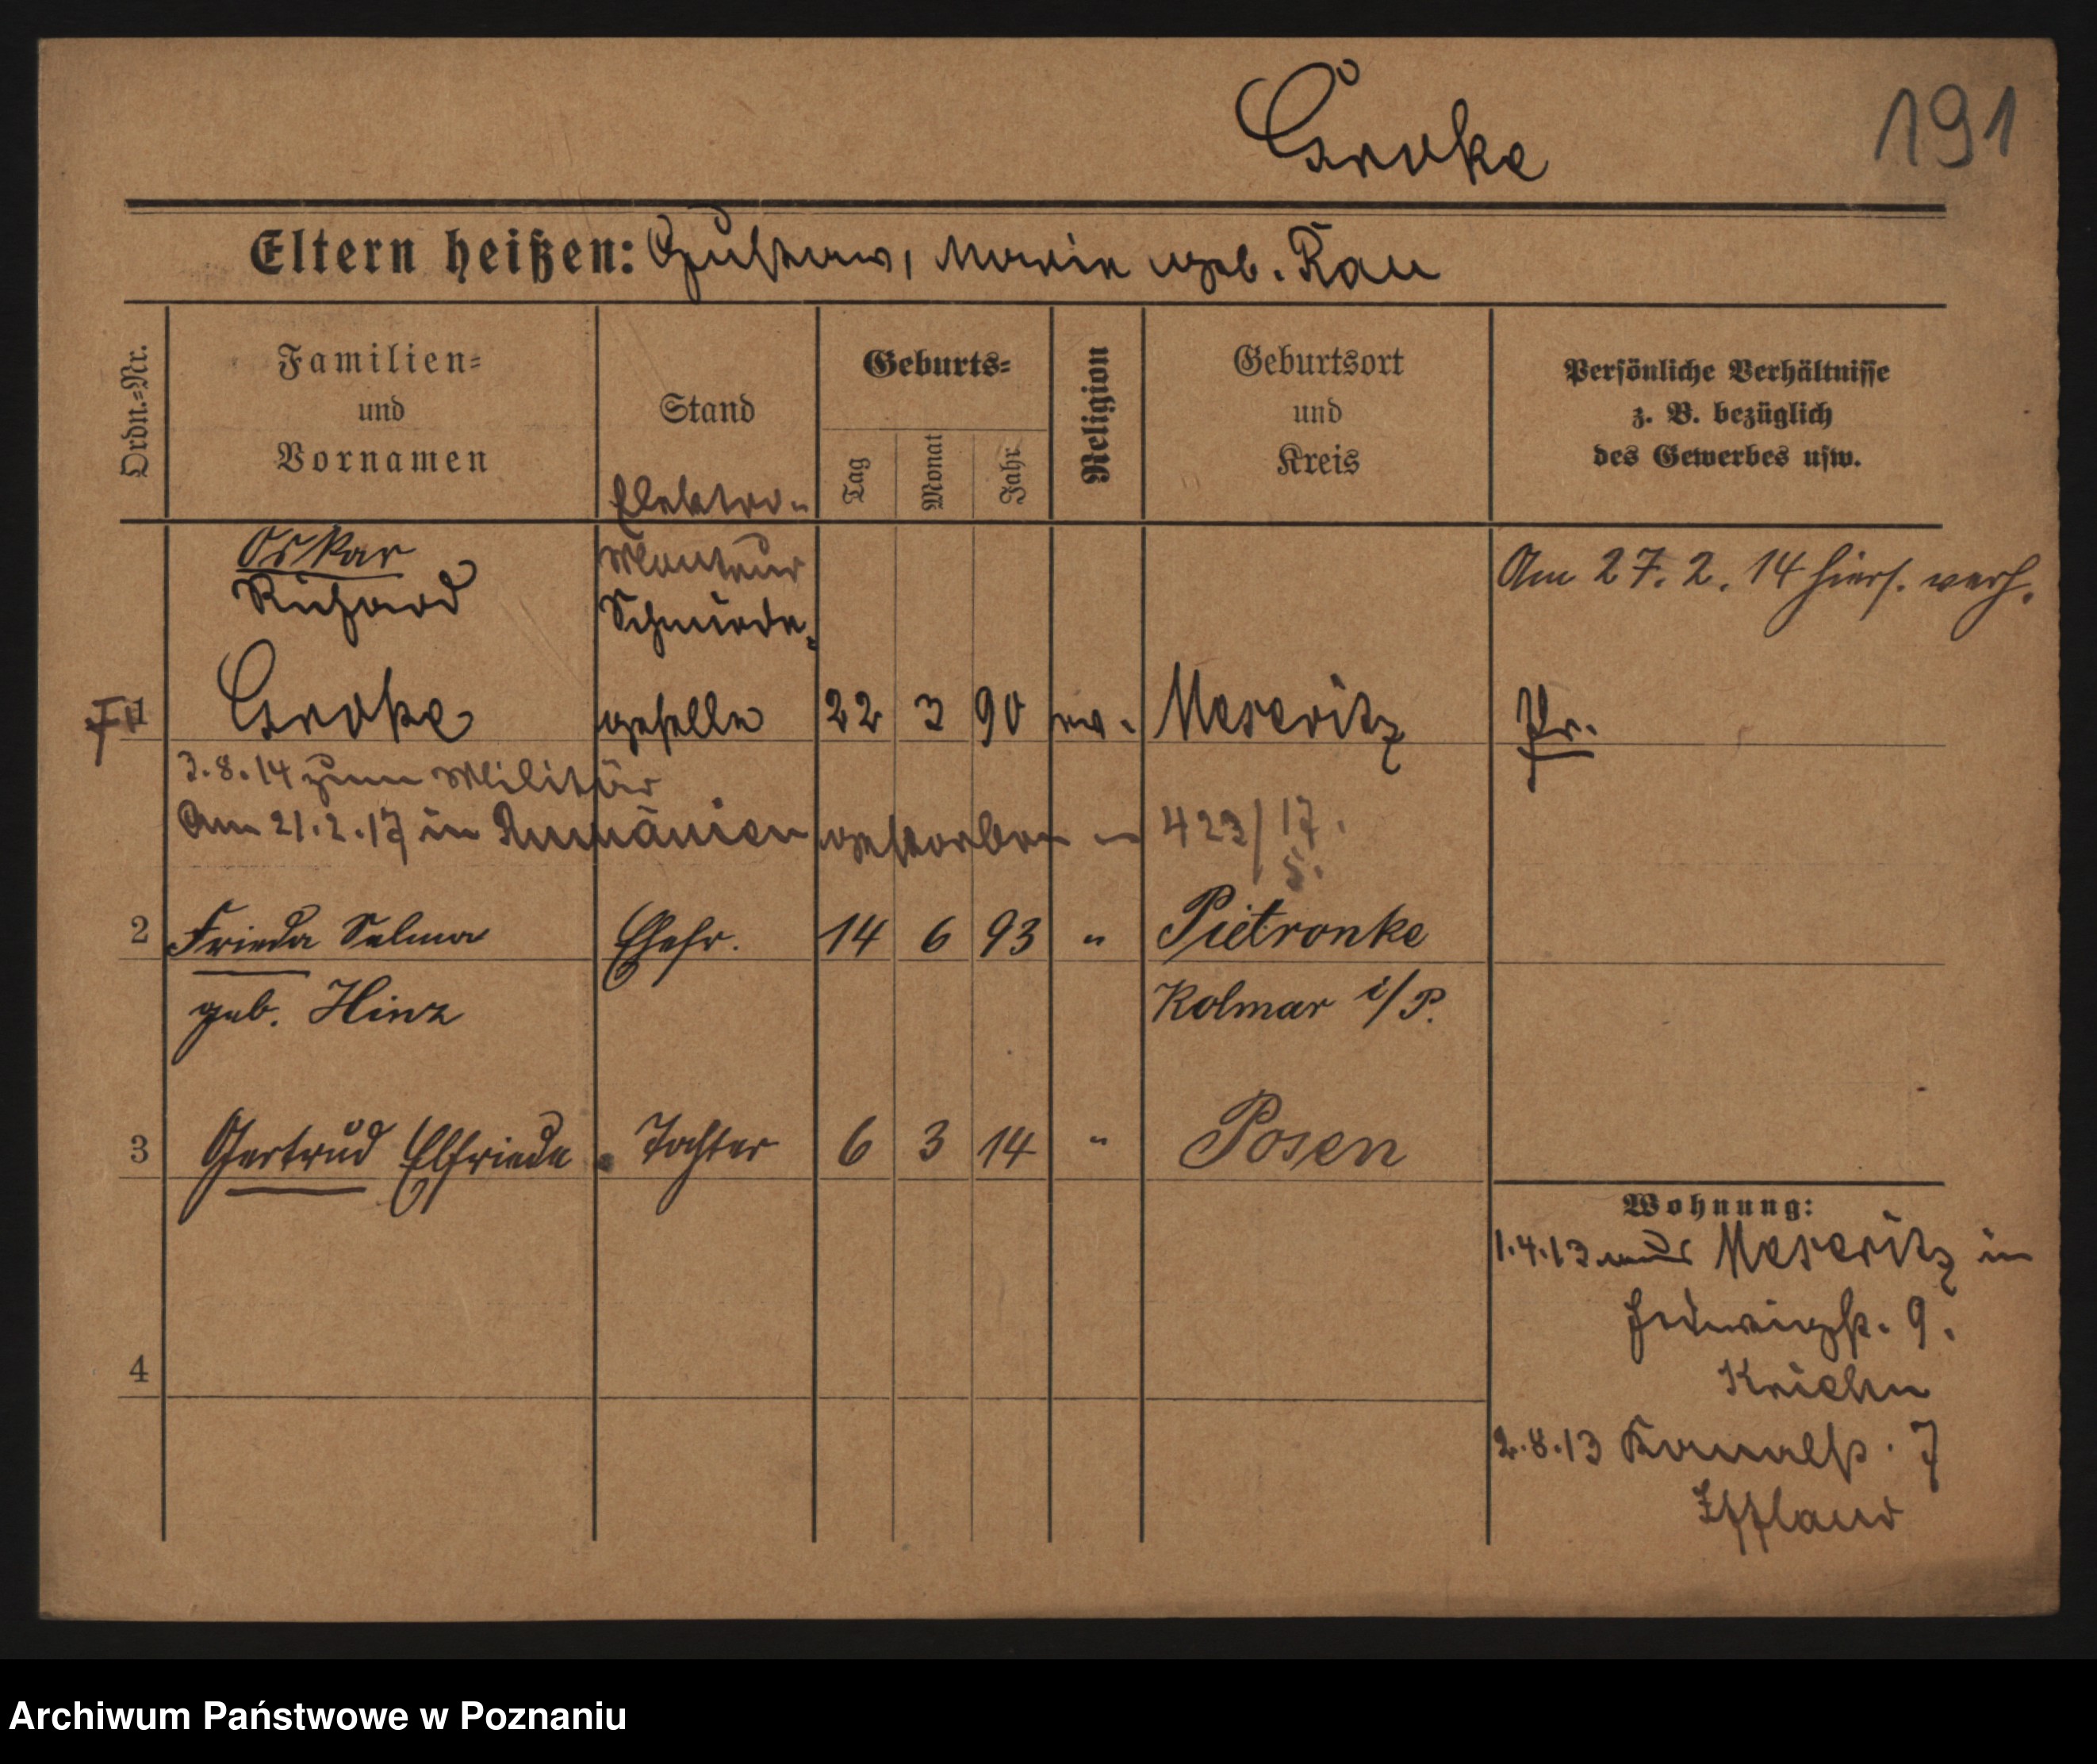 Groke
191
Eltern heißen: Gustav, Marie geb. Rau
Ordn.-Nr.
Familien-
und
Vornamen
Stand
Geburts-
Tag
Monat
Jahr
Religion
Geburtsort
und
Kreis
Persönliche Verhältnisse
z. B. bezüglich
des Gewerbes usw.
Elektro-
Monteur
Oskar
Richard
Schmiede-
Am 27. 2. 14 hiers. verh.
1 Groke geselle 22 3 90 ev. Meseritz Pr.
3.8.14 zum Militär
Am 21.2.17 in Rumänien gestorben – 423/17.
5.
2 Frieda Selma Ehefr. 14 6 93 " Pietronke
geb. Hinz Kolmar i/P.
3 Gertrud Elfriede Tochter 6 3 14 " Posen
Wohnung:
1.4.13 aus Meseritz in
Hedwigstr. 9.
Kriehn
4
2.8.13 Kanalstr. 7
Iffland
Archiwum Państwowe w Poznaniu